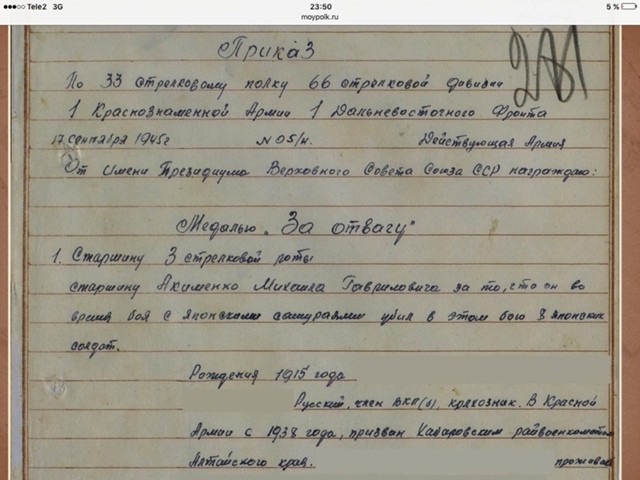 Tele2 3G 23:50 5 %
moypolk.ru
Приказ
281
По 33 стрелковому полку 66 стрелковой дивизии
1 Краснознаменной Армии 1 Дальневосточного Фронта
17 сентября 1945г №05/н. Действующая Армия
От имени Президиума Верховного Совета Союза ССР награждаю:
Медалью „За отвагу"
1. Старшину 3 стрелковой роты
старшину Акименко Михаила Гавриловича за то, что он во
время боя с японскими самураями убил в этом бою 8 японских
солдат.
Рождения 1915 года
Русский, член ВКП(б), В Красной
Армии с 1938 года, призван Хабаровским райвоенкоматом
Алтайского края. прожива